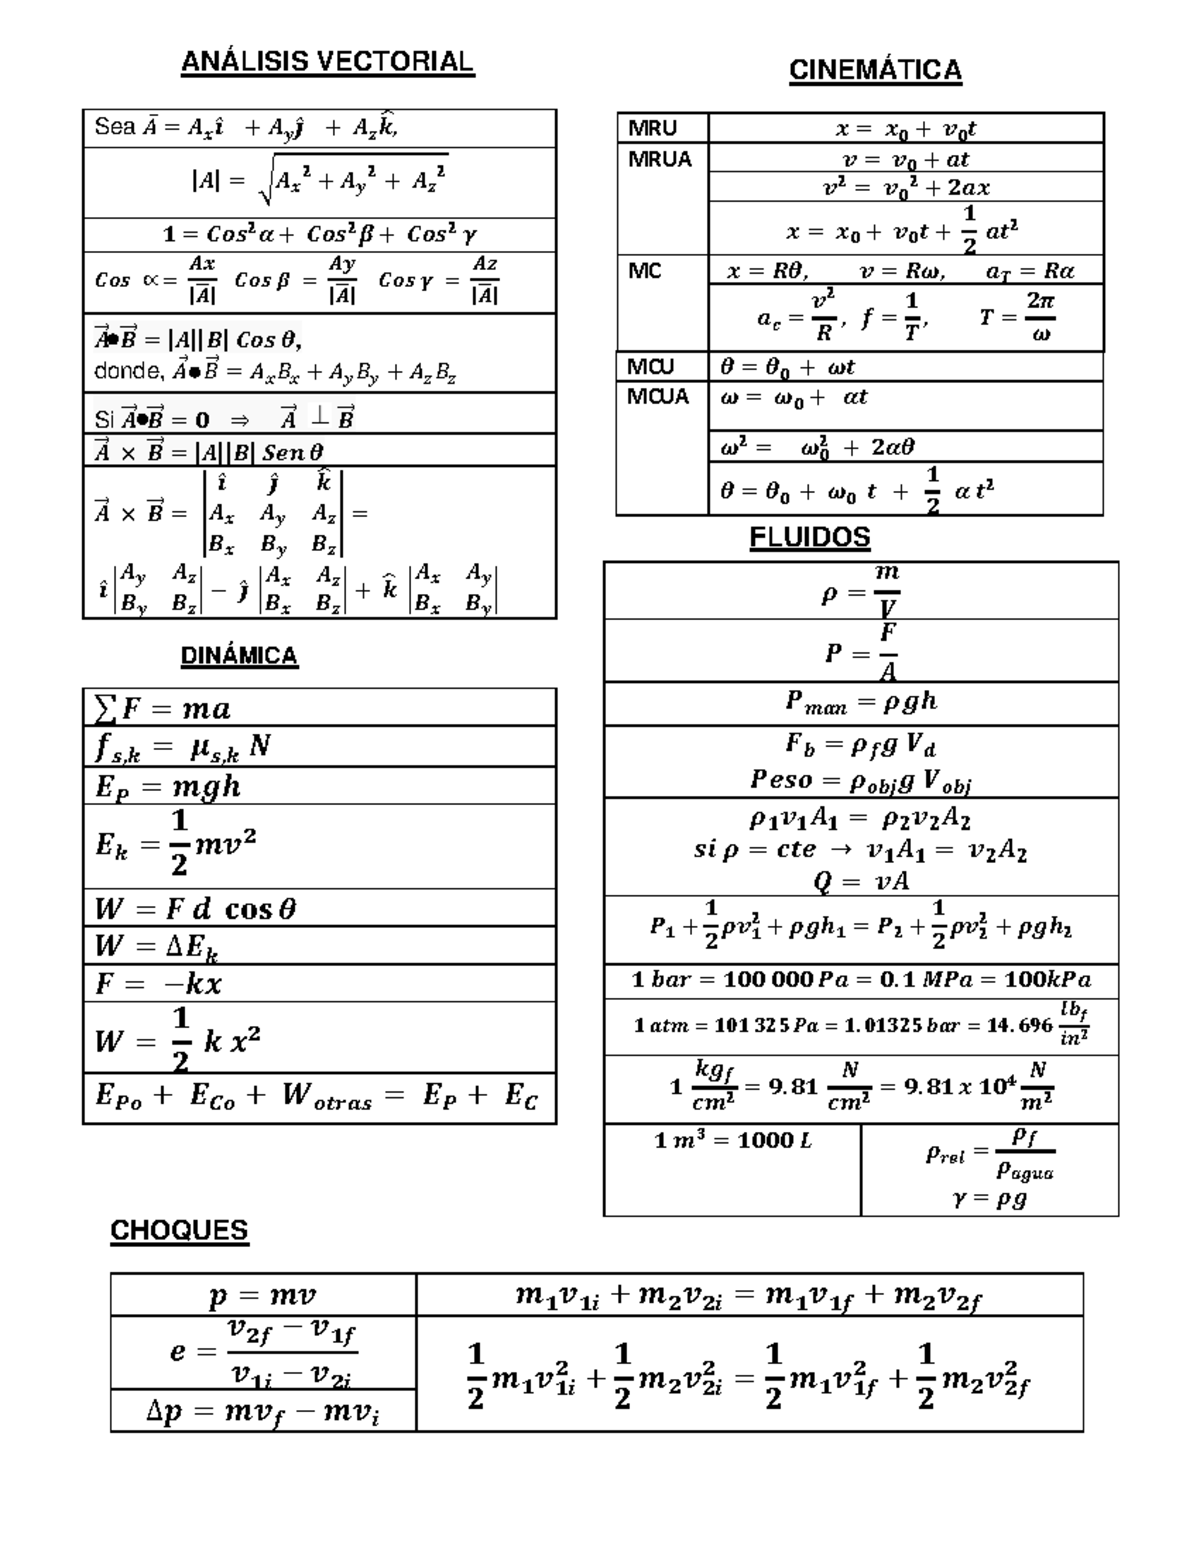 ANÁLISIS VECTORIAL
Sea Ā = Aₓî + Aᵧĵ + A_z k̂,
|A| = √(Aₓ² + Aᵧ² + A_z²)
1 = Cos²α + Cos²β + Cos² γ
Cos ∝ = Ax/|A̅| Cos β = Ay/|A̅| Cos γ = Az/|A̅|
A⃗●B⃗ = |A||B| Cos θ,
donde, A⃗●B⃗ = AₓBₓ + AᵧBᵧ + A_zB_z
Si A⃗●B⃗ = 0 ⇒ A⃗ ⊥ B⃗
A⃗ × B⃗ = |A||B| Sen θ
A⃗ × B⃗ = |î ĵ k̂; Aₓ Aᵧ A_z; Bₓ Bᵧ B_z| =
î |Aᵧ A_z; Bᵧ B_z| − ĵ |Aₓ A_z; Bₓ B_z| + k̂ |Aₓ Aᵧ; Bₓ Bᵧ|
DINÁMICA
∑ F = ma
f_s,k = μ_s,k N
E_P = mgh
E_k = 1/2 mv²
W = F d cos θ
W = ΔE_k
F = −kx
W = 1/2 k x²
E_Po + E_Co + W_otras = E_P + E_C
CINEMÁTICA
MRU x = x₀ + v₀t
MRUA v = v₀ + at
v² = v₀² + 2ax
x = x₀ + v₀t + 1/2 at²
MC x = Rθ, v = Rω, a_T = Rα
a_c = v²/R , f = 1/T, T = 2π/ω
MCU θ = θ₀ + ωt
MCUA ω = ω₀ + αt
ω² = ω₀² + 2αθ
θ = θ₀ + ω₀ t + 1/2 α t²
FLUIDOS
ρ = m/V
P = F/A
P_man = ρgh
F_b = ρ_f g V_d
Peso = ρ_obj g V_obj
ρ₁v₁A₁ = ρ₂v₂A₂
si ρ = cte → v₁A₁ = v₂A₂
Q = vA
P₁ + 1/2 ρv₁² + ρgh₁ = P₂ + 1/2 ρv₂² + ρgh₂
1 bar = 100 000 Pa = 0.1 MPa = 100kPa
1 atm = 101 325 Pa = 1.01325 bar = 14.696 lb_f/in²
1 kg_f/cm² = 9.81 N/cm² = 9.81 x 10⁴ N/m²
1 m³ = 1000 L
ρ_rel = ρ_f/ρ_agua
γ = ρg
CHOQUES
p = mv
m₁v₁ᵢ + m₂v₂ᵢ = m₁v₁f + m₂v₂f
e = (v₂f − v₁f)/(v₁ᵢ − v₂ᵢ)
1/2 m₁v₁ᵢ² + 1/2 m₂v₂ᵢ² = 1/2 m₁v₁f² + 1/2 m₂v₂f²
Δp = mv_f − mvᵢ